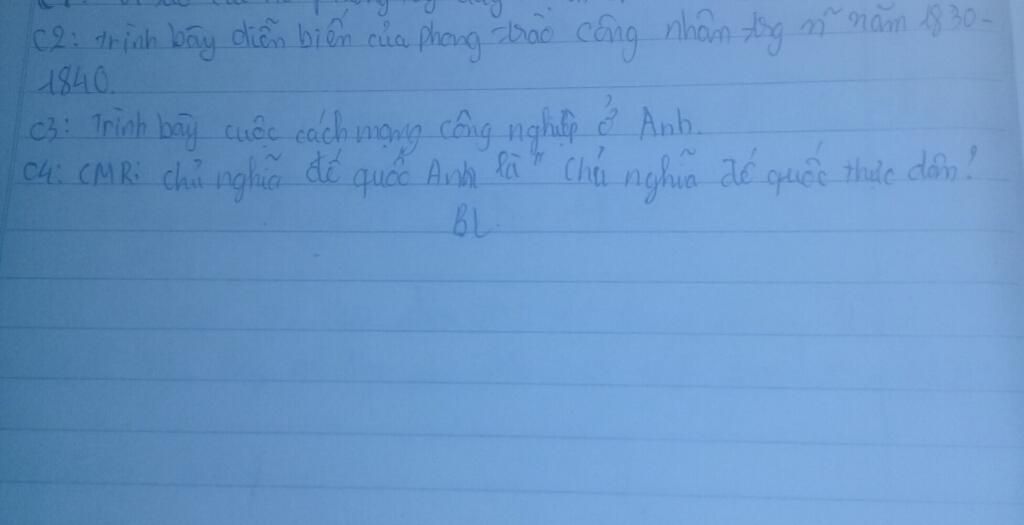 C2: trình bày diễn biến của phong trào công nhân trg n~ năm 1830-
1840.
C3: Trình bày cuộc cách mạng công nghiệp ở Anh.
C4: CMR: chủ nghĩa đế quốc Anh là " Chủ nghĩa đế quốc thực dân!
BL.